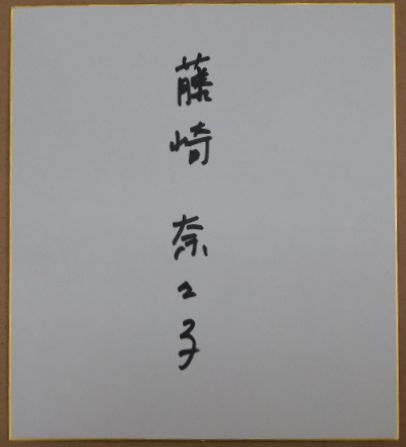 藤崎奈々子